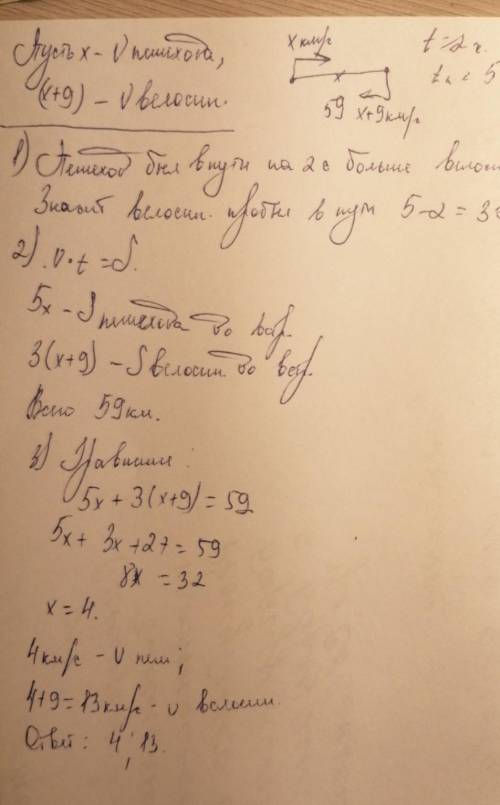 Пусть x - v пешехода,
(x+9) - v велосип.
x км/ч
t = 2 ч.
59 x+9 км/ч
1) Пешеход был в пути на 2 ч больше
Значит велосип. пробыл в пути 5-2=3
2) v·t=S.
5x - S пешехода до встр.
3(x+9) - S велосип. до встр.
Всего 59 км.
3) Уравнение:
5x+3(x+9)=59
5x+3x+27=59
8x=32
x=4.
4 км/ч - v пеш;
4+9=13 км/ч - v велосип.
Ответ: 4; 13.